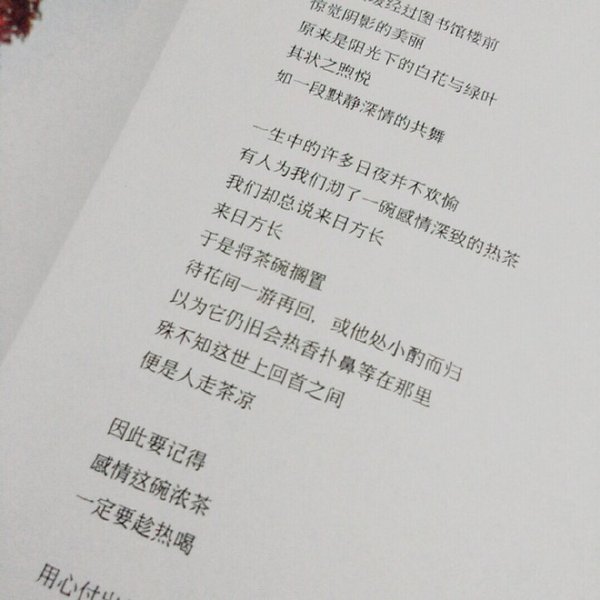 经过图书馆楼前
惊觉阴影的美丽
原来是阳光下的白花与绿叶
其状之煦悦
如一段默静深情的共舞
一生中的许多日夜并不欢愉
有人为我们沏了一碗感情深致的热茶
我们却总说来日方长
来日方长
于是将茶碗搁置
待花间一游再回，或他处小酌而归
以为它仍旧会热香扑鼻等在那里
殊不知这世上回首之间
便是人走茶凉
因此要记得
感情这碗浓茶
一定要趁热喝
用心付出